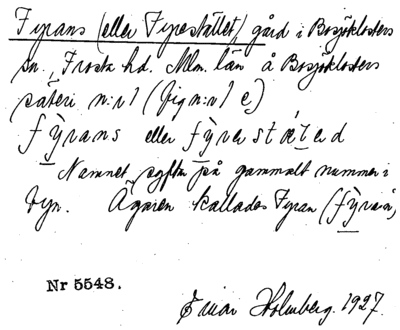 Fyrans (eller Fyrestället) gård i Bosjöklosters
sn., Frosta hd. Mlm. län å Bosjöklosters
säteri n:r 1 (fig n:r 1 e)
fỳrans eller fỳrestæ̀led
Namnet syftar på gammalt nummer i
byn. Ägaren kallades Fyran (fỳran)
Nr 5548.
Einar Holmberg. 1927.